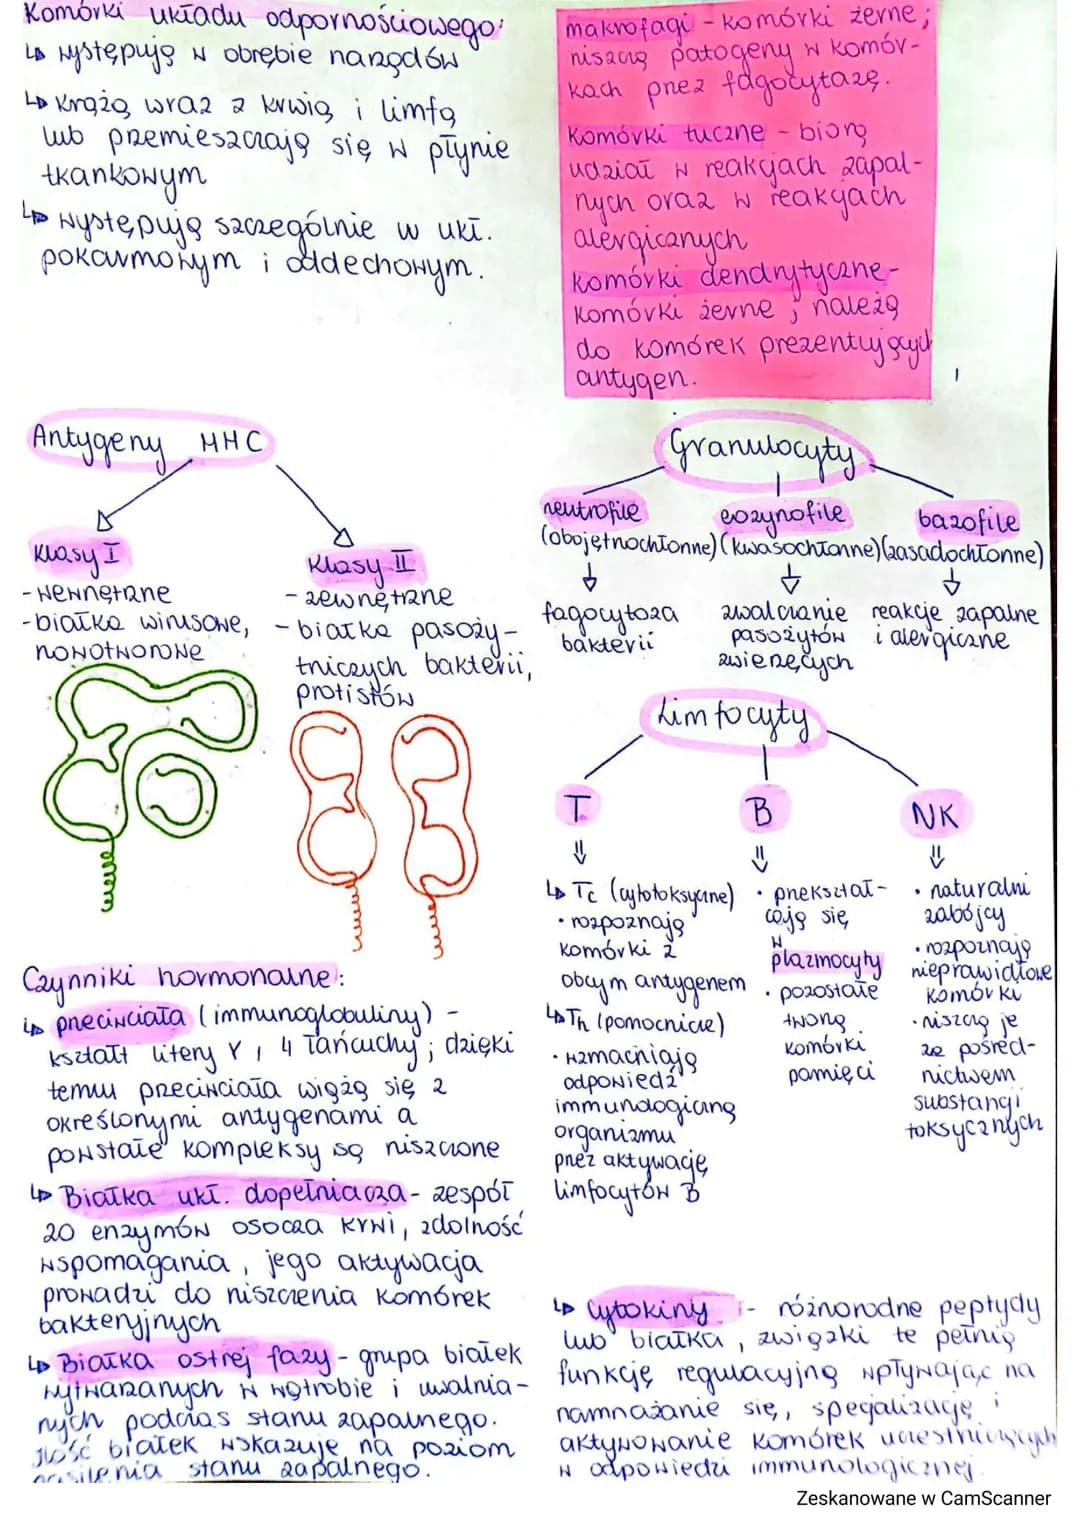 Komórki układu odpornościowego:
↳ występują w obrębie narządów
↳ krążą wraz z krwią i limfą
lub przemieszczają się w płynie
tkankowym
↳ występują szczególnie w ukł.
pokarmowym i oddechowym.
makrofagi - komórki żerne;
niszczą patogeny w komór-
kach przez fagocytazę.
komórki tuczne - biorą
udział w reakcjach zapal-
nych oraz w reakcjach
alergicznych
komórki dendrytyczne -
komórki żerne; należą
do komórek prezentujących
antygen.
Antygeny MHC
klasy I
- wewnętrzne
- białka wirusowe,
nowotworowe
klasy II
- zewnętrzne
- białka pasoży-
tniczych bakterii,
protistów
Granulocyty
neutrofile eozynofile bazofile
(obojętnochłonne) (kwasochłonne) (zasadochłonne)
fagocytoza zwalczanie reakcje zapalne
bakterii pasożytów i alergiczne
zwierzęcych
Limfocyty
T
↳ Tc (cytotoksyczne)
• rozpoznają
komórki z
obcym antygenem
↳ Th (pomocnicze)
• wzmacniają
odpowiedź
immunologiczną
organizmu
przez aktywację
limfocytów B
B
• przekształ-
cają się
w
plazmocyty
• pozostałe
tworzą
komórki
pamięci
NK
• naturalni
zabójcy
• rozpoznają
nieprawidłowe
komórki
• niszczą je
ze pośred-
nictwem
substancji
toksycznych
Czynniki hormonalne:
↳ przeciwciała (immunoglobuliny) -
kształt litery Y, 4 łańcuchy; dzięki
temu przeciwciała wiążą się z
określonymi antygenami a
powstałe kompleksy są niszczone
↳ Białka ukł. dopełniacza - zespół
20 enzymów osocza krwi, zdolność
wspomagania, jego aktywacja
prowadzi do niszczenia komórek
bakteryjnych
↳ Białka ostrej fazy - grupa białek
wytwarzanych w wątrobie i uwalnia-
nych podczas stanu zapalnego.
Ilość białek wskazuje na poziom
nasilenia stanu zapalnego.
↳ Cytokiny - różnorodne peptydy
lub białka, związki te pełnią
funkcję regulacyjną wpływając na
namnażanie się, specjalizację i
aktywowanie komórek uczestniczących
w odpowiedzi immunologicznej.
Zeskanowane w CamScanner